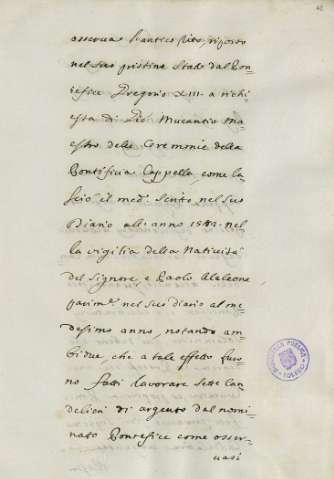 osserva l'antico Rito, riposto
nel suo pristino Stato dal Pon=
tefice Gregorio XIII. a richi
esta di Pio Mucantio Ma
estro delle Ceremonie della
Pontificia Cappella, come la
sciò il med.º Scritto nel suo
Diario all'anno 1582. nel
la vigilia della Natività
del Signore, e Paolo Alaleone
parim.e nel suo diario al me
desimo anno, notando am
bidue, che a tale effetto furo
no fatti lavorare sette Can
delieri di argento dal nomi
nato Pontefice come osser=
vasi
BIBLIOTECA PUBLICA
TOLEDO